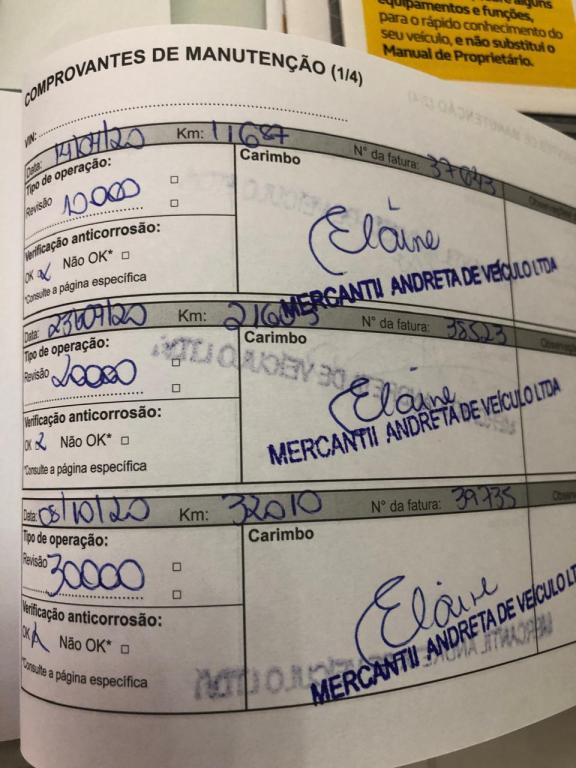 equipamentos e funções,
para o rápido conhecimento do
seu veículo, e não substitui o
Manual de Proprietário.
COMPROVANTES DE MANUTENÇÃO (1/4)
VIN:
Data: 14/07/20 Km: 11687 N° da fatura: 37043
Tipo de operação: Carimbo
Revisão 10000
Elaine
Verificação anticorrosão:
OK Não OK*
*Consulte a página específica
MERCANTIL ANDRETA DE VEÍCULO LTDA
Data: 23/09/20 Km: N° da fatura: 38523
Tipo de operação: Carimbo
Revisão 20000
Elaine
Verificação anticorrosão:
OK Não OK*
*Consulte a página específica
MERCANTIL ANDRETA DE VEÍCULO LTDA
Data: 08/10/20 Km: 32010 N° da fatura: 39735
Tipo de operação: Carimbo
Revisão 30000
Elaine
Verificação anticorrosão:
OK Não OK*
*Consulte a página específica
MERCANTIL ANDRETA DE VEÍCULO LT